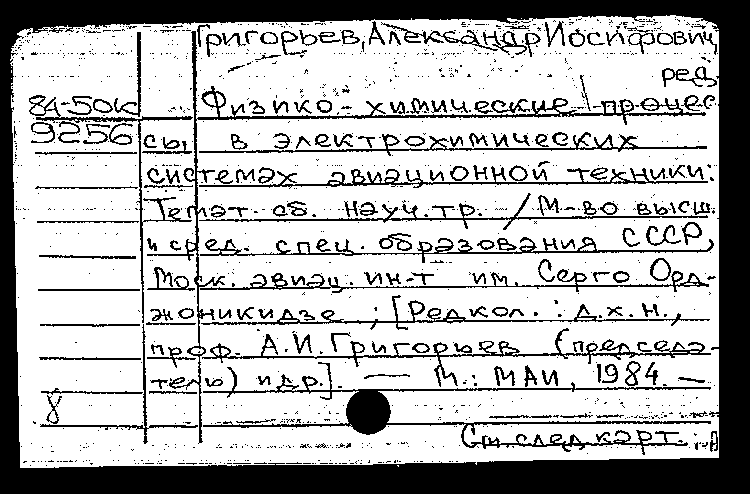 Григорьев, Александр Иосифович,
ред.
84-50к Физико-химические процес-
9256 сы в электрохимических
системах авиационной техники:
Темат. сб. науч. тр. / М-во высш.
и сред. спец. образования СССР,
Моск. авиац. ин-т им. Серго Орд-
жоникидзе ; [Редкол. : д.х.н.,
проф. А.И. Григорьев (председа-
тель) и др.]. — М.: МАИ, 1984 —
8
См. след. карт.